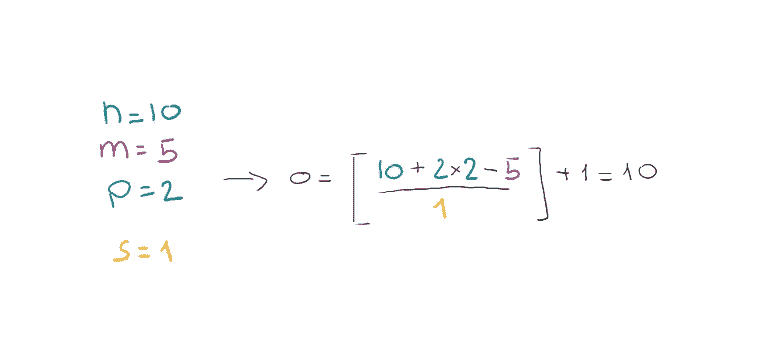 n=10
m=5
p=2
s=1
→ o = [ (10 + 2×2 - 5) / 1 ] + 1 = 10